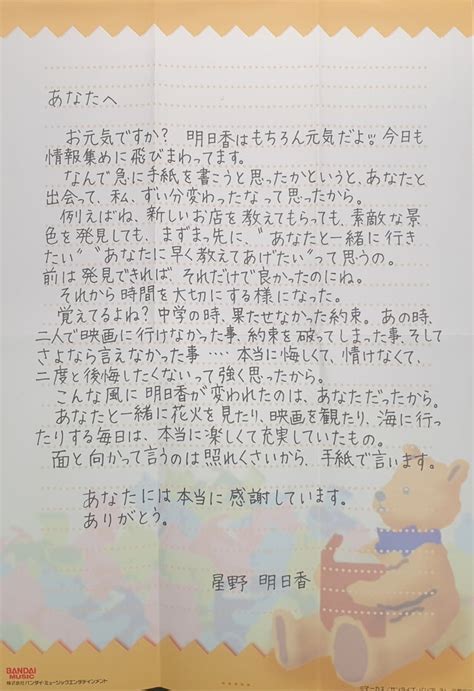 あなたへ
お元気ですか? 明日香はもちろん元気だよ!!今日も
情報集めに飛びまわってます。
なんで急に手紙を書こうと思ったかというと、あなたと
出会って、私、ずい分変わったなって思ったから。
例えばね、新しいお店を教えてもらっても、素敵な景
色を発見しても、まずまっ先に、"あなたと一緒に行き
たい""あなたに早く教えてあげたい"って思うの。
前は発見できれば、それだけで良かったのにね。
それから時間を大切にする様になった。
覚えてるよね?中学の時、果たせなかった約束。あの時、
二人で映画に行けなかった事、約束を破ってしまった事、そして
さよなら言えなかった事‥‥本当に悔しくて、情けなくて、
二度と後悔したくないって強く思ったから。
こんな風に明日香が変われたのは、あなただったから。
あなたと一緒に花火を見たり、映画を観たり、海に行っ
たりする毎日は、本当に楽しくて充実していたもの。
面と向かって言うのは照れくさいから、手紙で言います。
あなたには本当に感謝しています。
ありがとう。
星野 明日香
BANDAI
MUSIC
株式会社バンダイ・ミュージックエンタテインメント